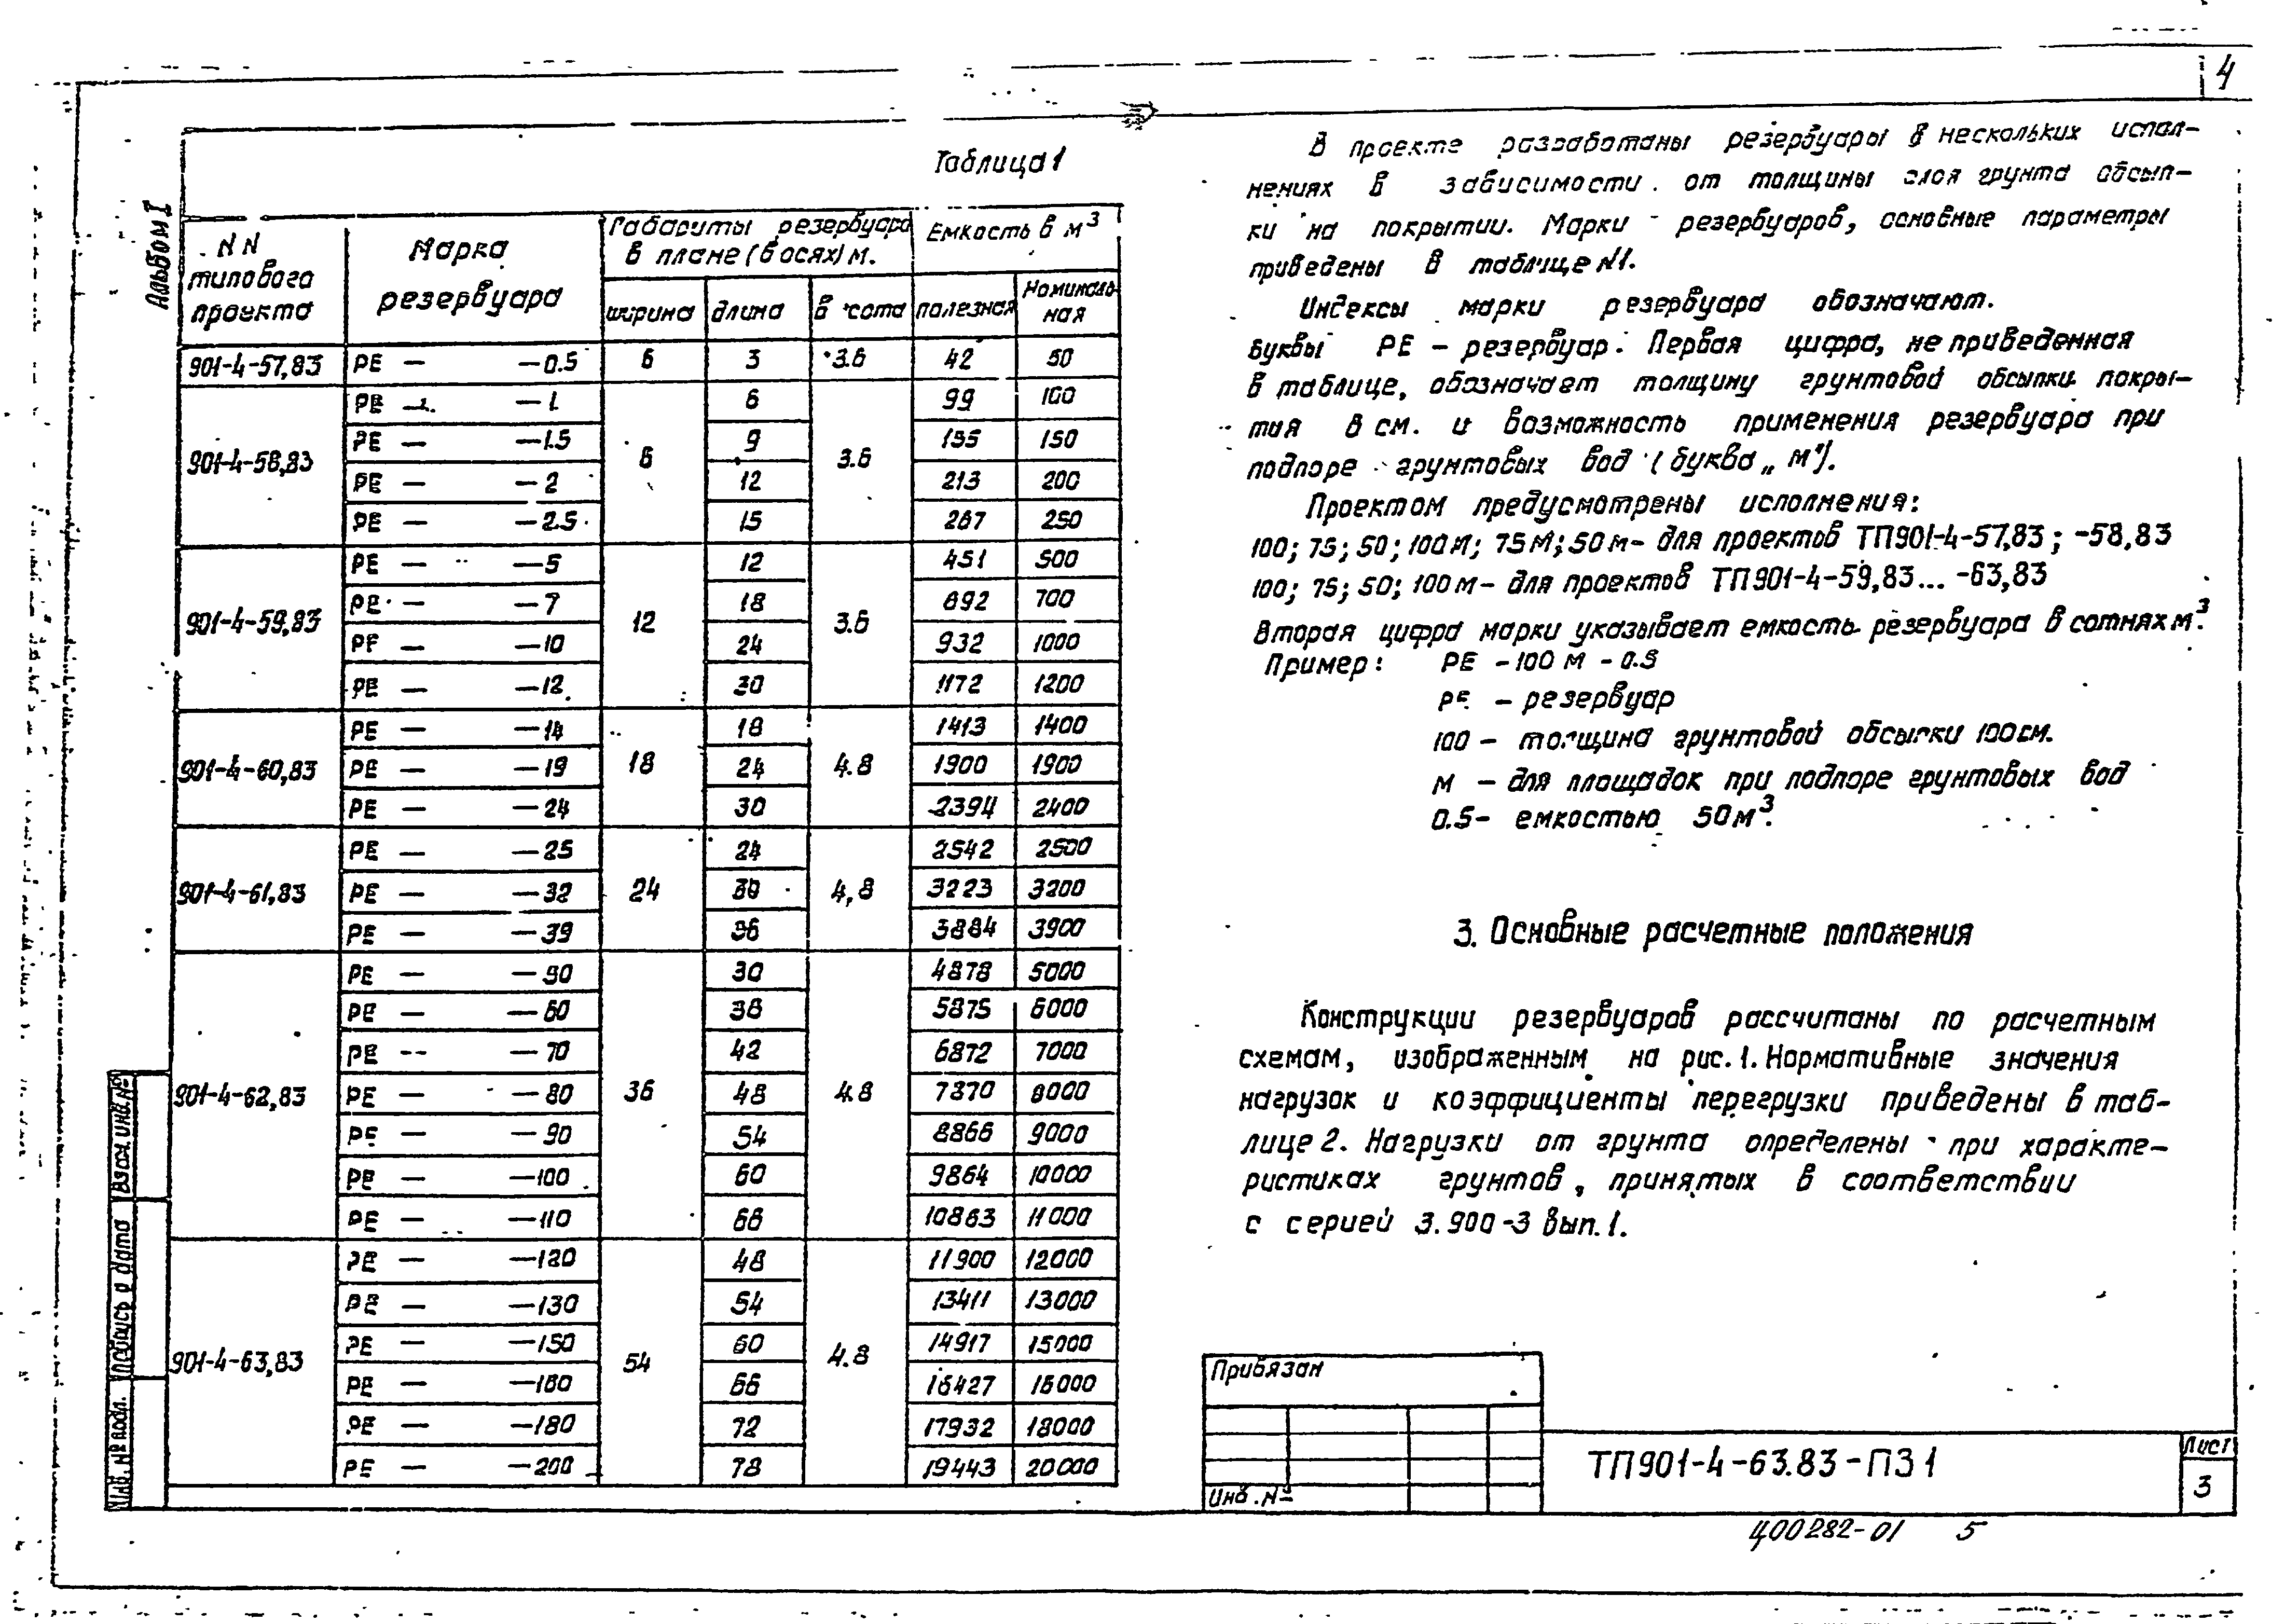 4
Альбом I
Таблица 1
NN типового проекта | Марка резервуара | Габариты резервуара в плане (в осях) м. | Емкость в м³
ширина | длина | высота | полезная | Номинальная
901-4-57,83 | РЕ — —0.5 | 6 | 3 | 3.6 | 42 | 50
901-4-58,83 | РЕ — —1 | 6 | 6 | 3.6 | 99 | 100
РЕ — —1.5 | 9 | 155 | 150
РЕ — —2 | 12 | 213 | 200
РЕ — —2.5 | 15 | 267 | 250
901-4-59,83 | РЕ — —5 | 12 | 12 | 3.6 | 451 | 500
РЕ — —7 | 18 | 692 | 700
РЕ — —10 | 24 | 932 | 1000
РЕ — —12 | 30 | 1172 | 1200
901-4-60,83 | РЕ — —14 | 18 | 18 | 4.8 | 1413 | 1400
РЕ — —19 | 24 | 1900 | 1900
РЕ — —24 | 30 | 2394 | 2400
901-4-61,83 | РЕ — —25 | 24 | 24 | 4,8 | 2542 | 2500
РЕ — —32 | 30 | 3223 | 3200
РЕ — —39 | 36 | 3884 | 3900
901-4-62,83 | РЕ — —50 | 36 | 30 | 4.8 | 4878 | 5000
РЕ — —60 | 36 | 5875 | 6000
РЕ -- —70 | 42 | 6872 | 7000
РЕ — —80 | 48 | 7870 | 8000
РЕ — —90 | 54 | 8866 | 9000
РЕ — —100 | 60 | 9864 | 10000
РЕ — —110 | 66 | 10863 | 11000
901-4-63,83 | РЕ — —120 | 54 | 48 | 4.8 | 11900 | 12000
РЕ — —130 | 54 | 13411 | 13000
РЕ — —150 | 60 | 14917 | 15000
РЕ — —160 | 66 | 16427 | 16000
РЕ — —180 | 72 | 17932 | 18000
РЕ — —200 | 78 | 19443 | 20000
В проекте разработаны резервуары в нескольких испол-
нениях в зависимости от толщины слоя грунта обсып-
ки на покрытии. Марки резервуаров, основные параметры
приведены в таблице N1.
Индексы марки резервуара обозначают.
буквы РЕ – резервуар. Первая цифра, не приведенная
в таблице, обозначает толщину грунтовой обсыпки покры-
тия в см. и возможность применения резервуара при
подпоре грунтовых вод (буква „м").
Проектом предусмотрены исполнения:
100; 75; 50; 100М; 75М; 50м – для проектов ТП901-4-57,83; -58,83
100; 75; 50; 100м – для проектов ТП901-4-59,83... -63,83
Вторая цифра марки указывает емкость резервуара в сотнях м³.
Пример: РЕ -100 М - 0.5
РЕ – резервуар
100 – толщина грунтовой обсыпки 100см.
М – для площадок при подпоре грунтовых вод
0.5- емкостью 50м³.
3. Основные расчетные положения
Конструкции резервуаров рассчитаны по расчетным
схемам, изображенным на рис. 1. Нормативные значения
нагрузок и коэффициенты перегрузки приведены в таб-
лице 2. Нагрузки от грунта определены при характе-
ристиках грунтов, принятых в соответствии
с серией 3.900-3 вып. 1.
Взам. инв. №
Подпись и дата
Инв. № подл.
Привязан
Инв. №
ТП901-4-63.83-ПЗ1
Лист
3
400282-01 5